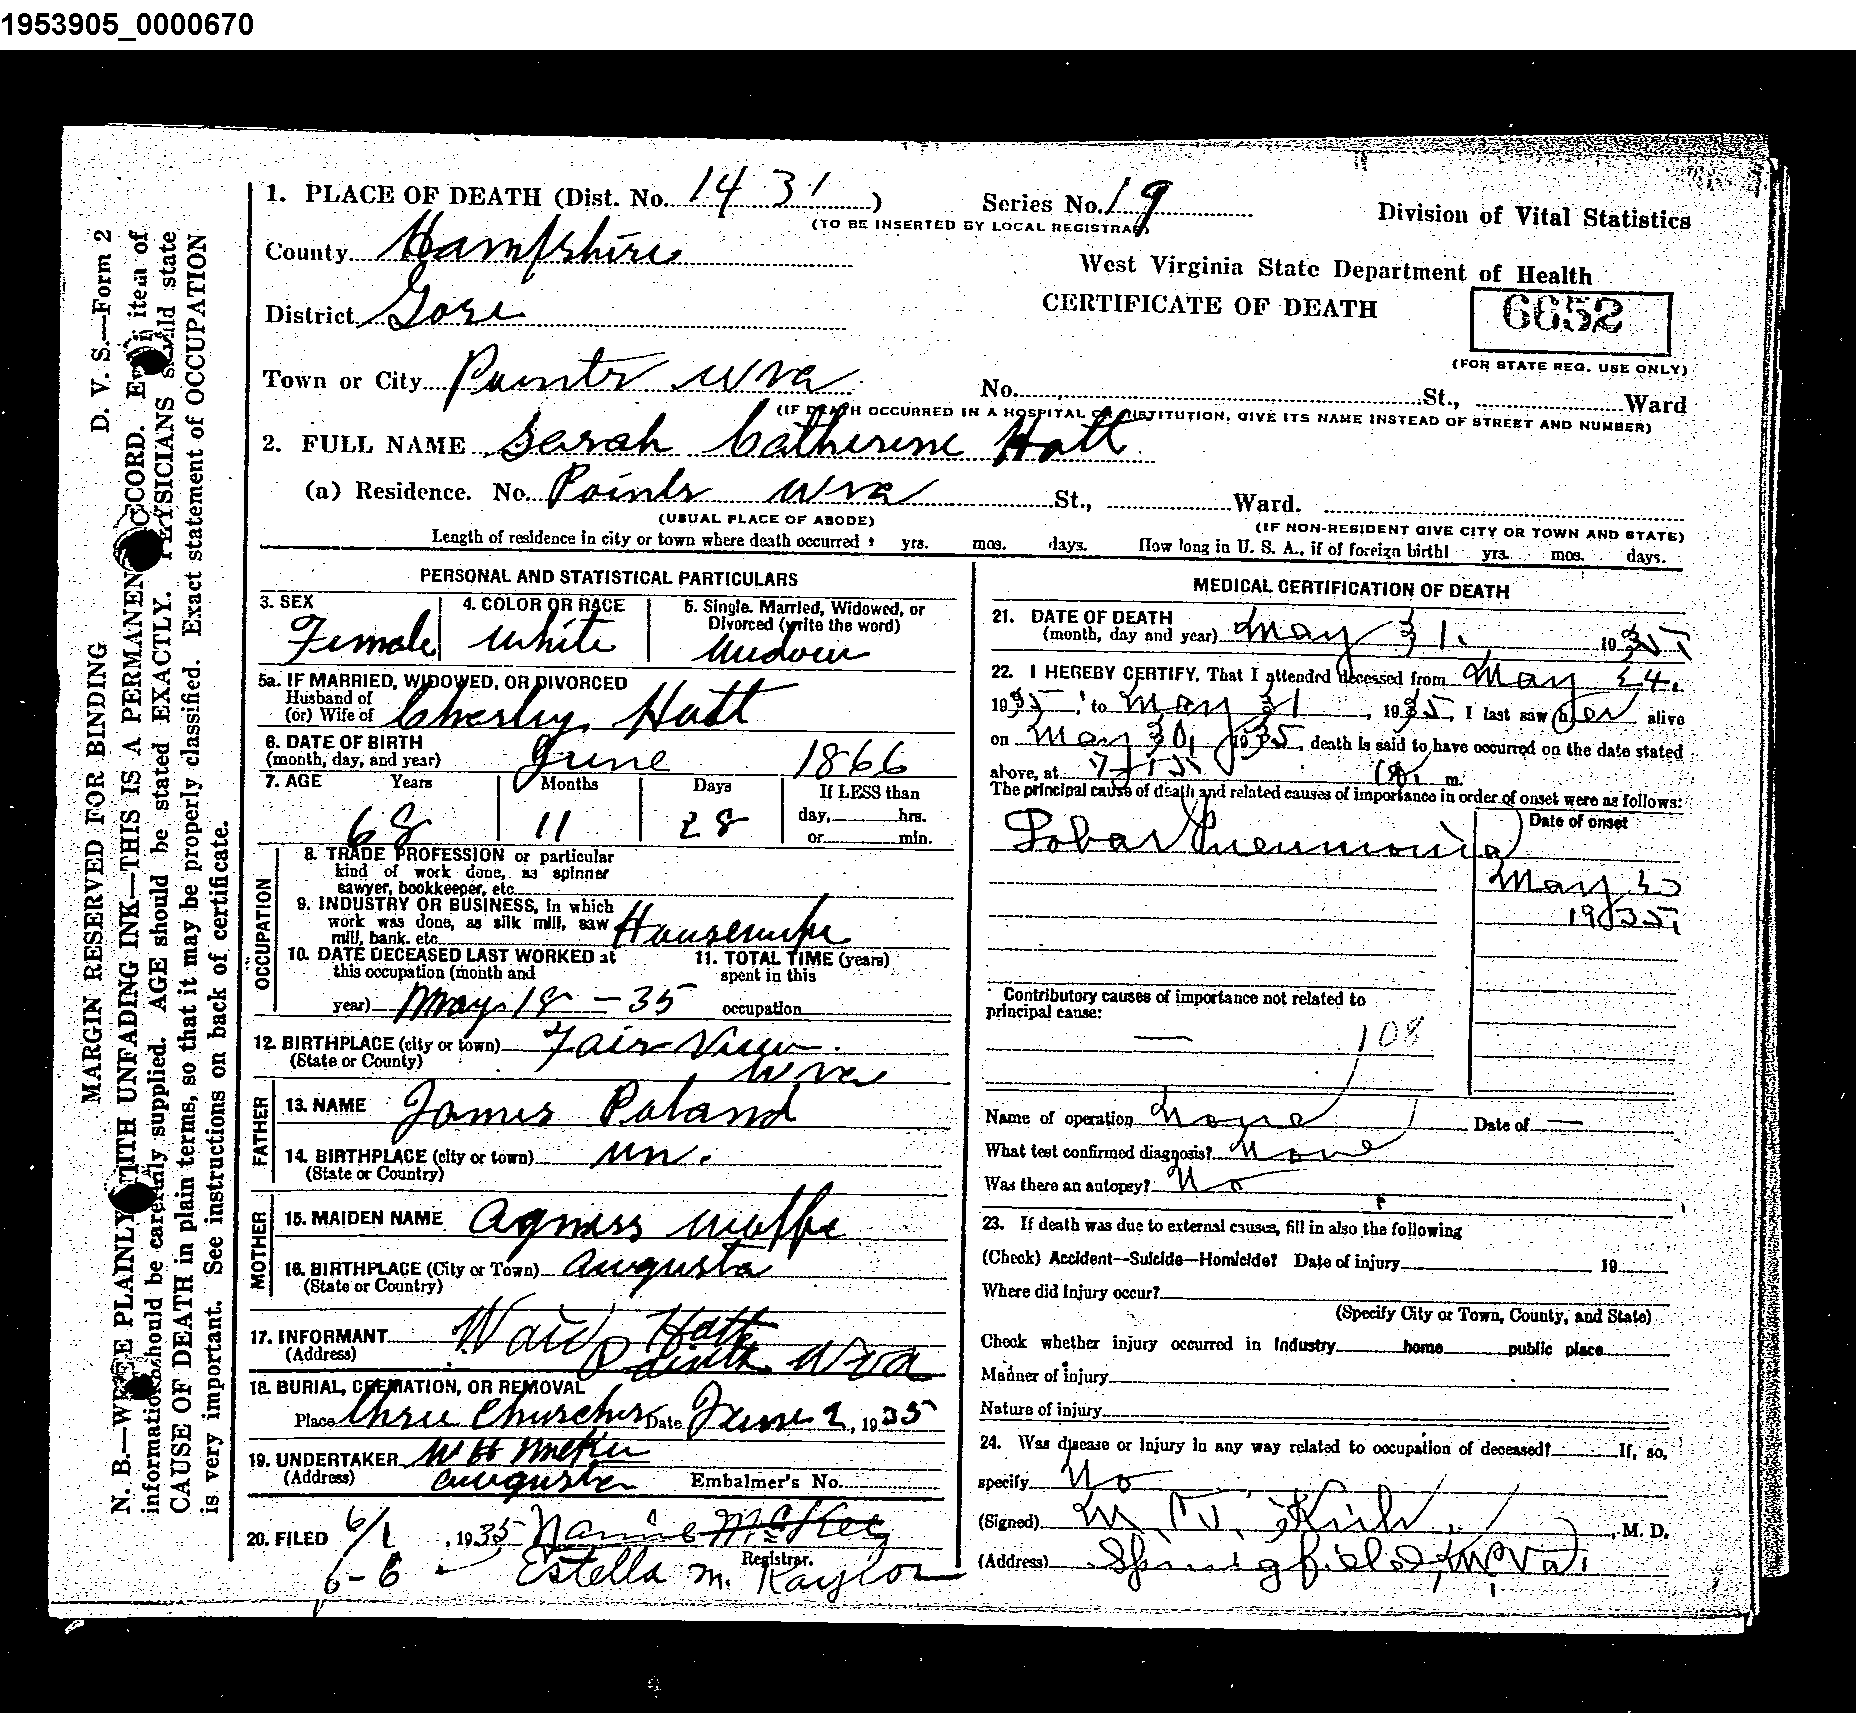 1953905_0000670
1. PLACE OF DEATH (Dist. No. 1431 ) Series No. 19 Division of Vital Statistics
(TO BE INSERTED BY LOCAL REGISTRAR)
County Hampshire West Virginia State Department of Health
District Gore CERTIFICATE OF DEATH 6652
(FOR STATE REG. USE ONLY)
Town or City Points W Va No. St., Ward
(IF DEATH OCCURRED IN A HOSPITAL OR INSTITUTION, GIVE ITS NAME INSTEAD OF STREET AND NUMBER)
2. FULL NAME Sarah Catherine Hott
(a) Residence. No. Points W Va St., Ward.
(USUAL PLACE OF ABODE) (IF NON-RESIDENT GIVE CITY OR TOWN AND STATE)
Length of residence in city or town where death occurred? yrs. mos. days. How long in U. S. A., if of foreign birth! yrs. mos. days.
PERSONAL AND STATISTICAL PARTICULARS
3. SEX 4. COLOR OR RACE 5. Single, Married, Widowed, or
Divorced (write the word)
Female White Widow
5a. IF MARRIED, WIDOWED, OR DIVORCED
Husband of
(or) Wife of Hott
6. DATE OF BIRTH
(month, day, and year) June 1866
7. AGE Years Months Days If LESS than
68 11 28 day, hrs.
or min.
OCCUPATION
8. TRADE PROFESSION or particular
kind of work done, as spinner
sawyer, bookkeeper, etc.
9. INDUSTRY OR BUSINESS, in which
work was done, as silk mill, saw
mill, bank. etc Housewife
10. DATE DECEASED LAST WORKED at 11. TOTAL TIME (years)
this occupation (month and spent in this
year) May 18 - 35 occupation
12. BIRTHPLACE (city or town) Fair View
(State or County) W Va
FATHER
13. NAME James Poland
14. BIRTHPLACE (city or town) un.
(State or Country)
MOTHER
15. MAIDEN NAME Agness Wolfe
16. BIRTHPLACE (City or Town) Augusta
(State or Country)
17. INFORMANT Hott
(Address) Points W Va
18. BURIAL, CREMATION, OR REMOVAL
Place Three Churches Date June 2, 1935
19. UNDERTAKER W H McKee
(Address) Augusta Embalmer's No.
20. FILED 6/1, 1935 Nannie McKee
Registrar.
6-6 - Estella M. Kaylor
MEDICAL CERTIFICATION OF DEATH
21. DATE OF DEATH
(month, day and year) May 31, 1935
22. I HEREBY CERTIFY, That I attended deceased from May 24,
1935, to May 31, 1935, I last saw her alive
on May 30, 1935, death is said to have occurred on the date stated
above, at m.
The principal cause of death and related causes of importance in order of onset were as follows:
Date of onset
Lobar Pneumonia
May
1935,
Contributory causes of importance not related to
principal cause:
— 108
Name of operation None Date of —
What test confirmed diagnosis? None
Was there an autopsy? No
23. If death was due to external causes, fill in also the following
(Check) Accident—Suicide—Homicide? Date of injury 19
Where did injury occur?
(Specify City or Town, County, and State)
Check whether injury occurred in Industry home public place
Manner of injury
Nature of injury
24. Was disease or injury in any way related to occupation of deceased? If, so,
specify No
(Signed) , M. D.
(Address) Springfield, W Va.
MARGIN RESERVED FOR BINDING D. V. S.—Form 2
N. B.—WRITE PLAINLY WITH UNFADING INK—THIS IS A PERMANENT RECORD. Every item of
information should be carefully supplied. AGE should be stated EXACTLY. PHYSICIANS should state
CAUSE OF DEATH in plain terms, so that it may be properly classified. Exact statement of OCCUPATION
is very important. See instructions on back of certificate.